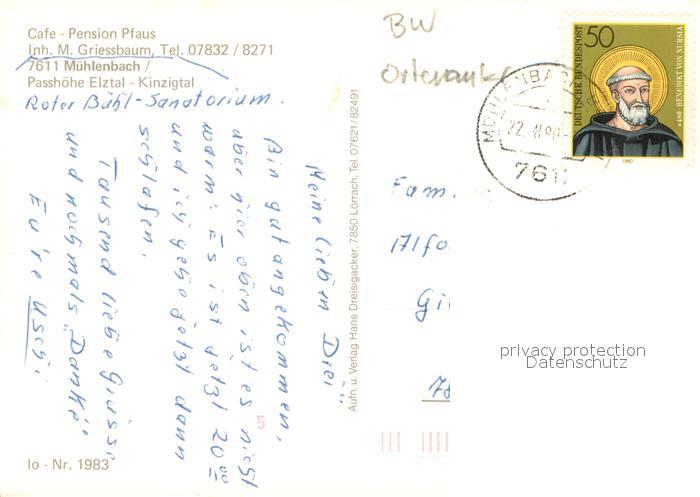 Cafe - Pension Pfaus
Inh. M. Griessbaum, Tel. 07832 / 8271
7611 Mühlenbach /
Passhöhe Elztal - Kinzigtal
Roter Bühl-Sanatorium.
Meine lieben Drei"
Bin gut angekommen,
aber hier oben ist es nicht
warm. Es ist jetzt 20⁰⁰
und ich gehe jetzt dann
schlafen.
Tausend liebe Grüsse
und nochmals "Danke"
Eure Uschi
Io - Nr. 1983
Aufn. u. Verlag Hans Dreisigacker, 7850 Lörrach, Tel. 07621/82491
5
BW
DEUTSCHE BUNDESPOST
50
*480 · BENEDIKT VON NURSIA
1980
22.
761
Fam.
Alfo
Gi
78
privacy protection
Datenschutz